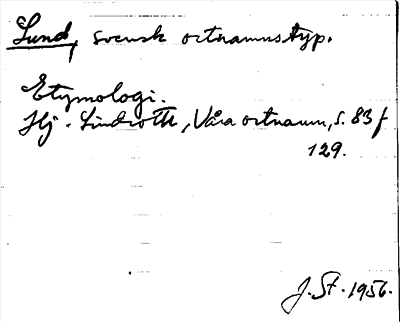 Lund, svensk ortnamnstyp.
Etymologi.
Hj. Lindroth, Våra ortnamn, s. 83 f
129.
J. St. 1956.